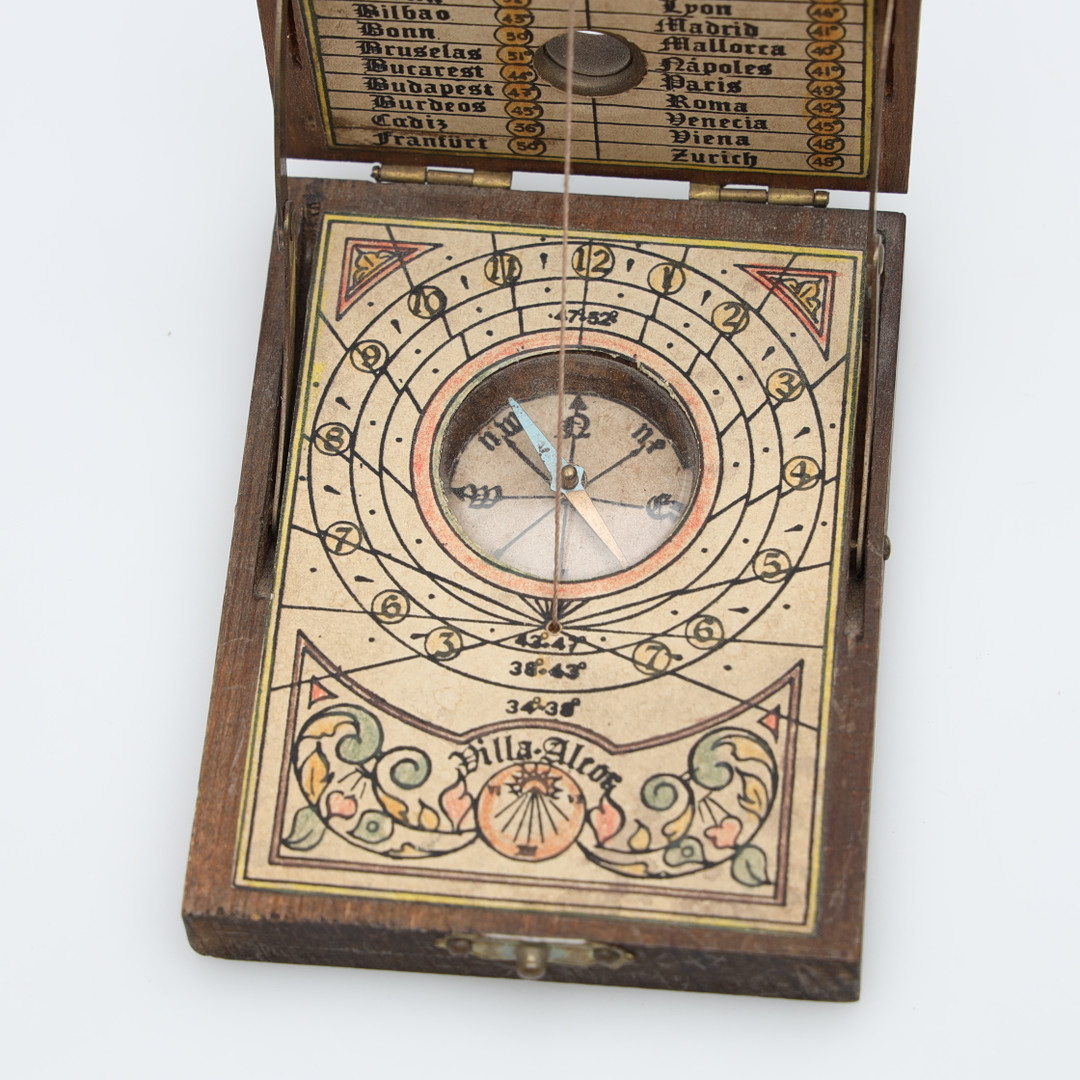 Bilbao 43°
Bonn 50°
Bruselas 51°
Bucarest 44°
Budapest 47°
Burdeos 45°
Cadiz 36°
Franfürt 50°
Lyon
Madrid 41°
Mallorca 40°
Nápoles 41°
Paris
Roma 42°
Venecia 45°
Viena 48°
Zurich 48°
11 12 1
10 2
9 3
8 4
7 5
6 6
3 7
47°52°
nw N ne
W E
42°47°
38°43°
34°38°
Villa-Alcor